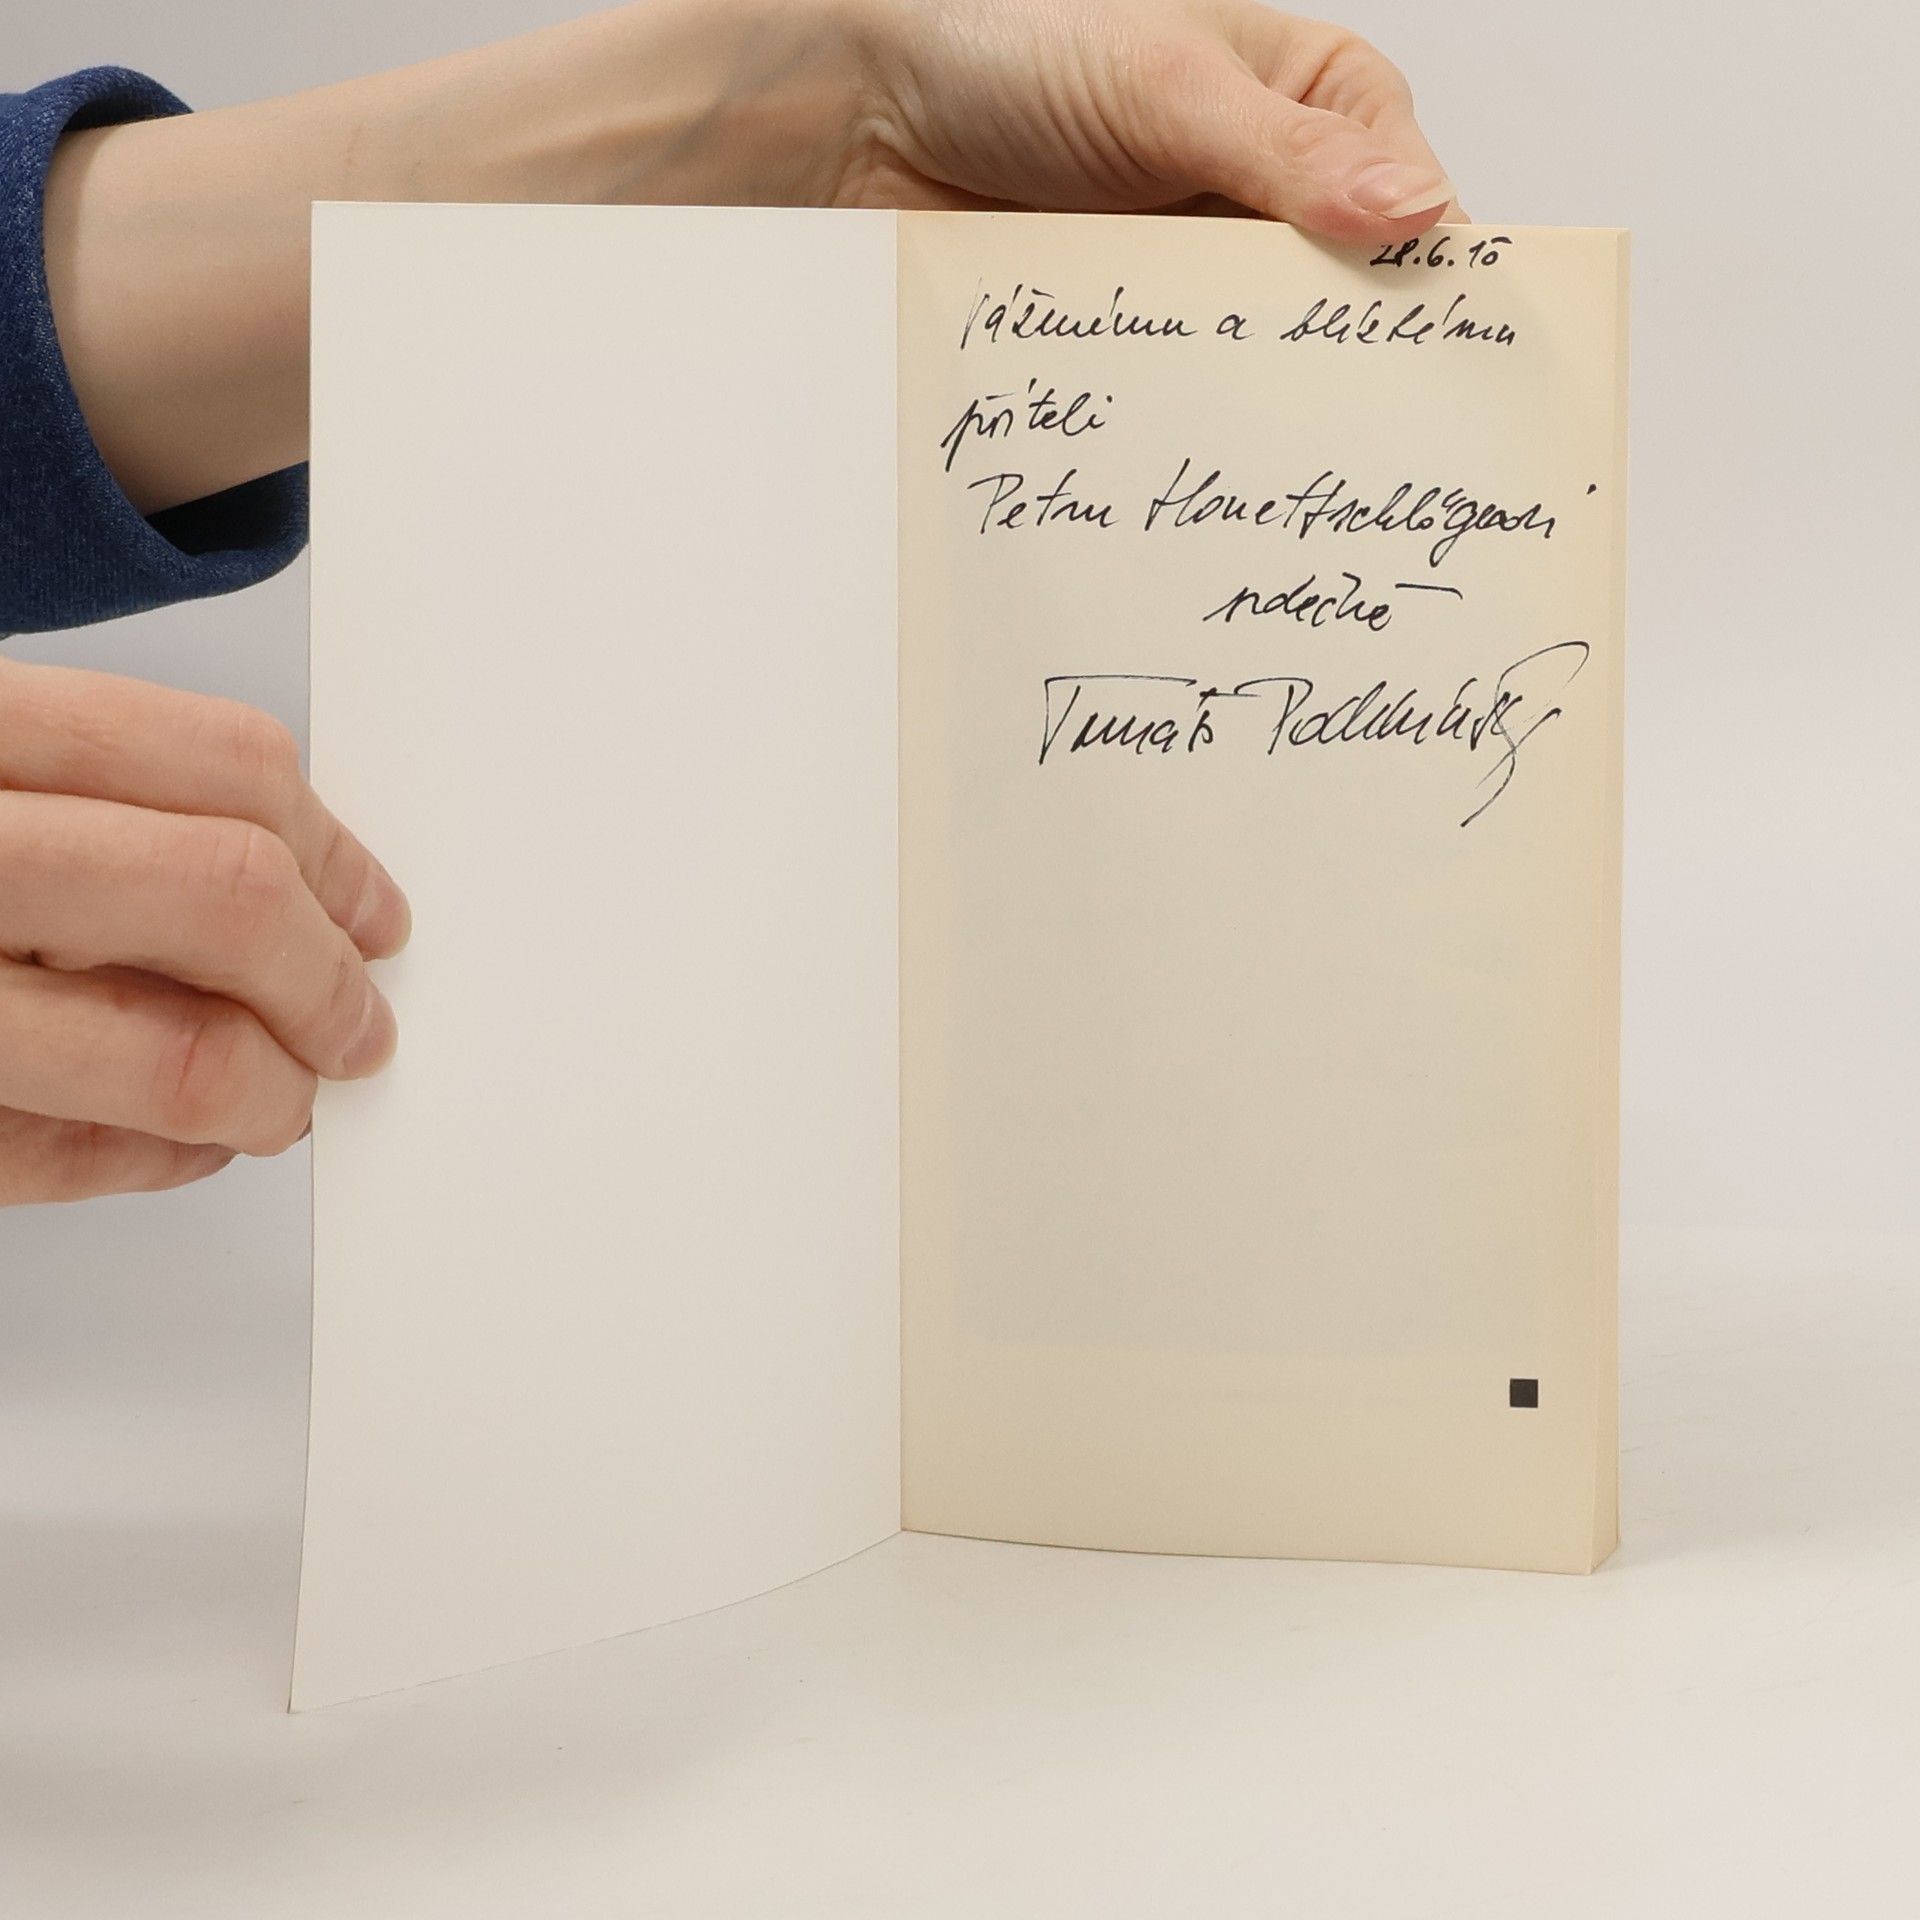 28.6.10
Váženému a blízkému
příteli
Petru Honettschlägerovi
srdečně
Tomáš